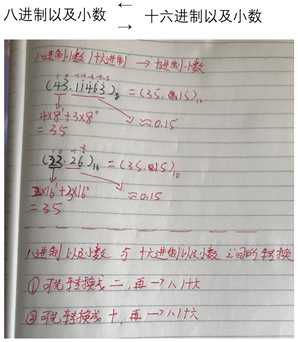 八进制以及小数 ← → 十六进制以及小数
八进制小数/十六进制 → 十进制小数
(43.11463)₈ = (35.15)₁₀
4×8¹+3×8⁰ ≈0.15
= 35
(23.26)₁₆ = (35.15)₁₀
2×16¹+3×16⁰ ≈0.15
= 35
八进制以及小数 与 十六进制以及小数 之间的转换
①可先转换成二,再一>八/十六
②可先转换成十,再一>八/十六